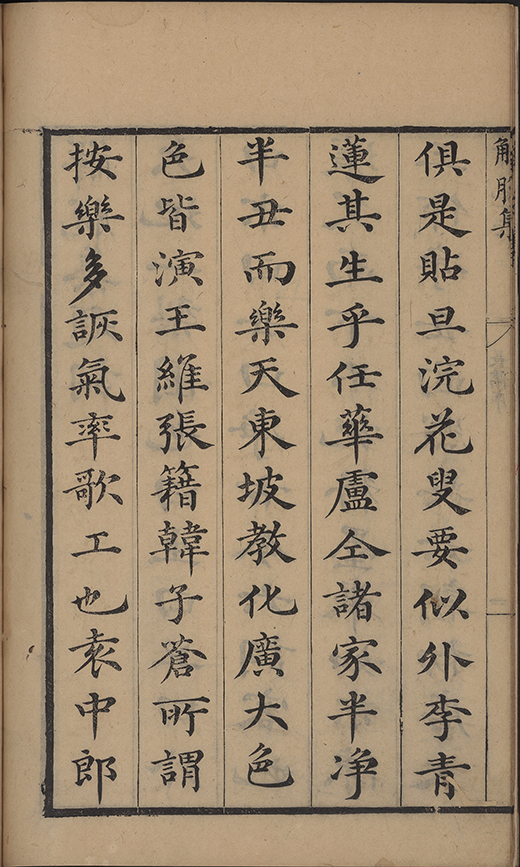 解脫集
俱是貼旦浣花叟要似外李青
蓮其生乎任華盧仝諸家半净
半丑而樂天東坡教化廣大色
色皆演王維張籍韓子蒼所謂
按樂多詼氣率歌工也袁中郎